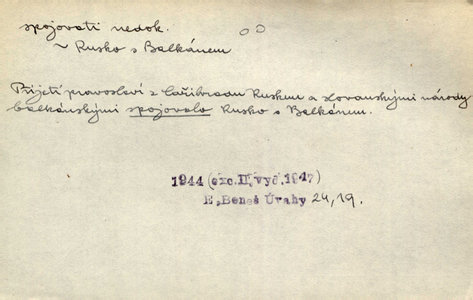 spojovati nedok.
~ Rusko s Balkánem
Přijetí pravoslaví z Cařihradu Ruskem a slovanskými národy
balkánskými spojovalo Rusko s Balkánem.
1944 (exc.II,vyd.1947)
E.Beneš Úvahy 24,19.